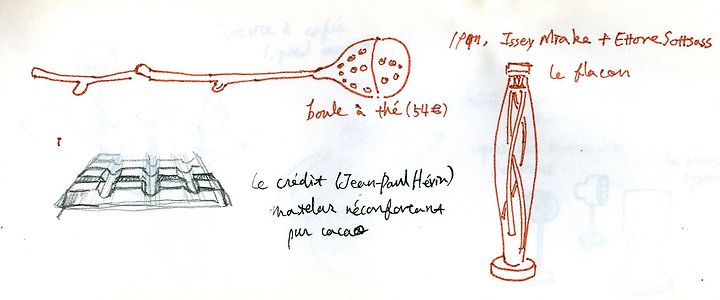 boule à thé (54€)
Issey Miyake + Ettore Sottsass
le flacon
le crédit (Jean-Paul Hévin)
matelas réconfortant
pur cacao